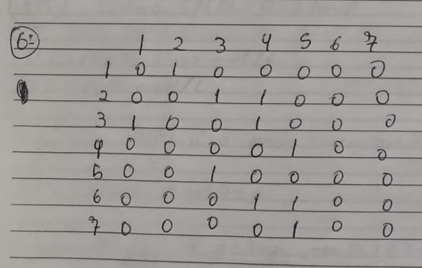 6:
1 2 3 4 5 6 7
1 0 1 0 0 0 0 0
2 0 0 1 1 0 0 0
3 1 0 0 1 0 0 0
4 0 0 0 0 1 0 0
5 0 0 1 0 0 0 0
6 0 0 0 1 1 0 0
7 0 0 0 0 1 0 0